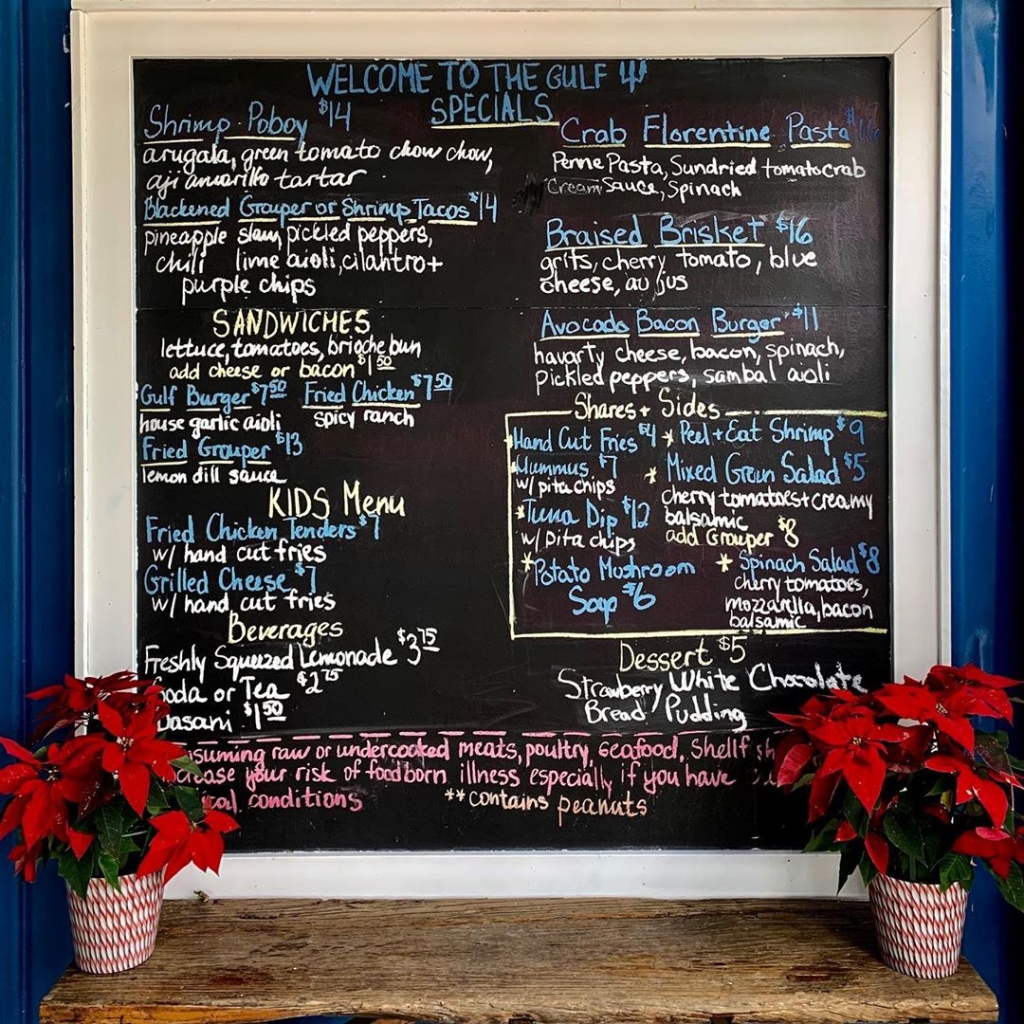 WELCOME TO THE GULF
SPECIALS
Shrimp Poboy $14
arugala, green tomato chow chow,
aji amarillo tartar
Blackened Grouper or Shrimp Tacos $14
pineapple slaw, pickled peppers,
chili lime aioli, cilantro +
purple chips
Crab Florentine Pasta $16
Penne Pasta, Sundried tomato crab
Cream Sauce, Spinach
Braised Brisket $16
grits, cherry tomato, blue
cheese, au jus
Avocado Bacon Burger $11
havarty cheese, bacon, spinach,
pickled peppers, sambal aioli
SANDWICHES
lettuce, tomatoes, brioche bun
add cheese or bacon $1.50
Gulf Burger $7.50
house garlic aioli
Fried Chicken $7.50
spicy ranch
Fried Grouper $13
lemon dill sauce
KIDS Menu
Fried Chicken Tenders $7
w/ hand cut fries
Grilled Cheese $7
w/ hand cut fries
Beverages
Freshly Squeezed Lemonade $3.75
Soda or Tea $2.75
Dasani $1.50
Shares + Sides
Hand Cut Fries $4
Hummus $7
w/ pita chips
* Tuna Dip $12
w/ pita chips
* Potato Mushroom
Soup $6
* Peel + Eat Shrimp $9
* Mixed Green Salad $5
cherry tomatoes + creamy
balsamic
add Grouper $8
* Spinach Salad $8
cherry tomatoes,
mozzarella, bacon
balsamic
Dessert $5
Strawberry White Chocolate
Bread Pudding
suming raw or undercooked meats, poultry, seafood, Shellf
ease your risk of foodborn illness especially if you have
cal conditions
**contains peanuts